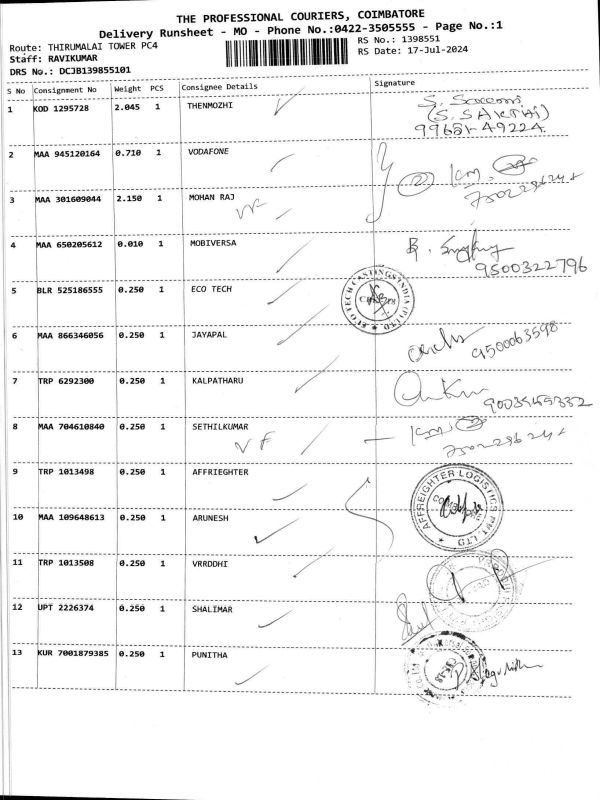 THE PROFESSIONAL COURIERS, COIMBATORE
Delivery Runsheet - MO - Phone No.:0422-3505555 - Page No.:1
Route: THIRUMALAI TOWER PC4
RS No.: 1398551
Staff: RAVIKUMAR
RS Date: 17-Jul-2024
DRS No.: DCJB139855101
S No Consignment No Weight PCS Consignee Details Signature
1 KOD 1295728 2.045 1 THENMOZHI
(S. SAKTHI)
2 MAA 945120164 0.710 1 VODAFONE
3 MAA 301609044 2.150 1 MOHAN RAJ
VF
4 MAA 650205612 0.010 1 MOBIVERSA
9500322796
5 BLR 525186555 0.250 1 ECO TECH
ECO TECH CASTINGS INDIA (P) LTD
6 MAA 866346056 0.250 1 JAYAPAL
9500063598
7 TRP 6292300 0.250 1 KALPATHARU
8 MAA 704610840 0.250 1 SETHILKUMAR
VF
9 TRP 1013498 0.250 1 AFFRIEGHTER
AFFREIGHTER LOGISTICS PVT LTD
10 MAA 109648613 0.250 1 ARUNESH
11 TRP 1013508 0.250 1 VRRDDHI
12 UPT 2226374 0.250 1 SHALIMAR
13 KUR 7001879385 0.250 1 PUNITHA